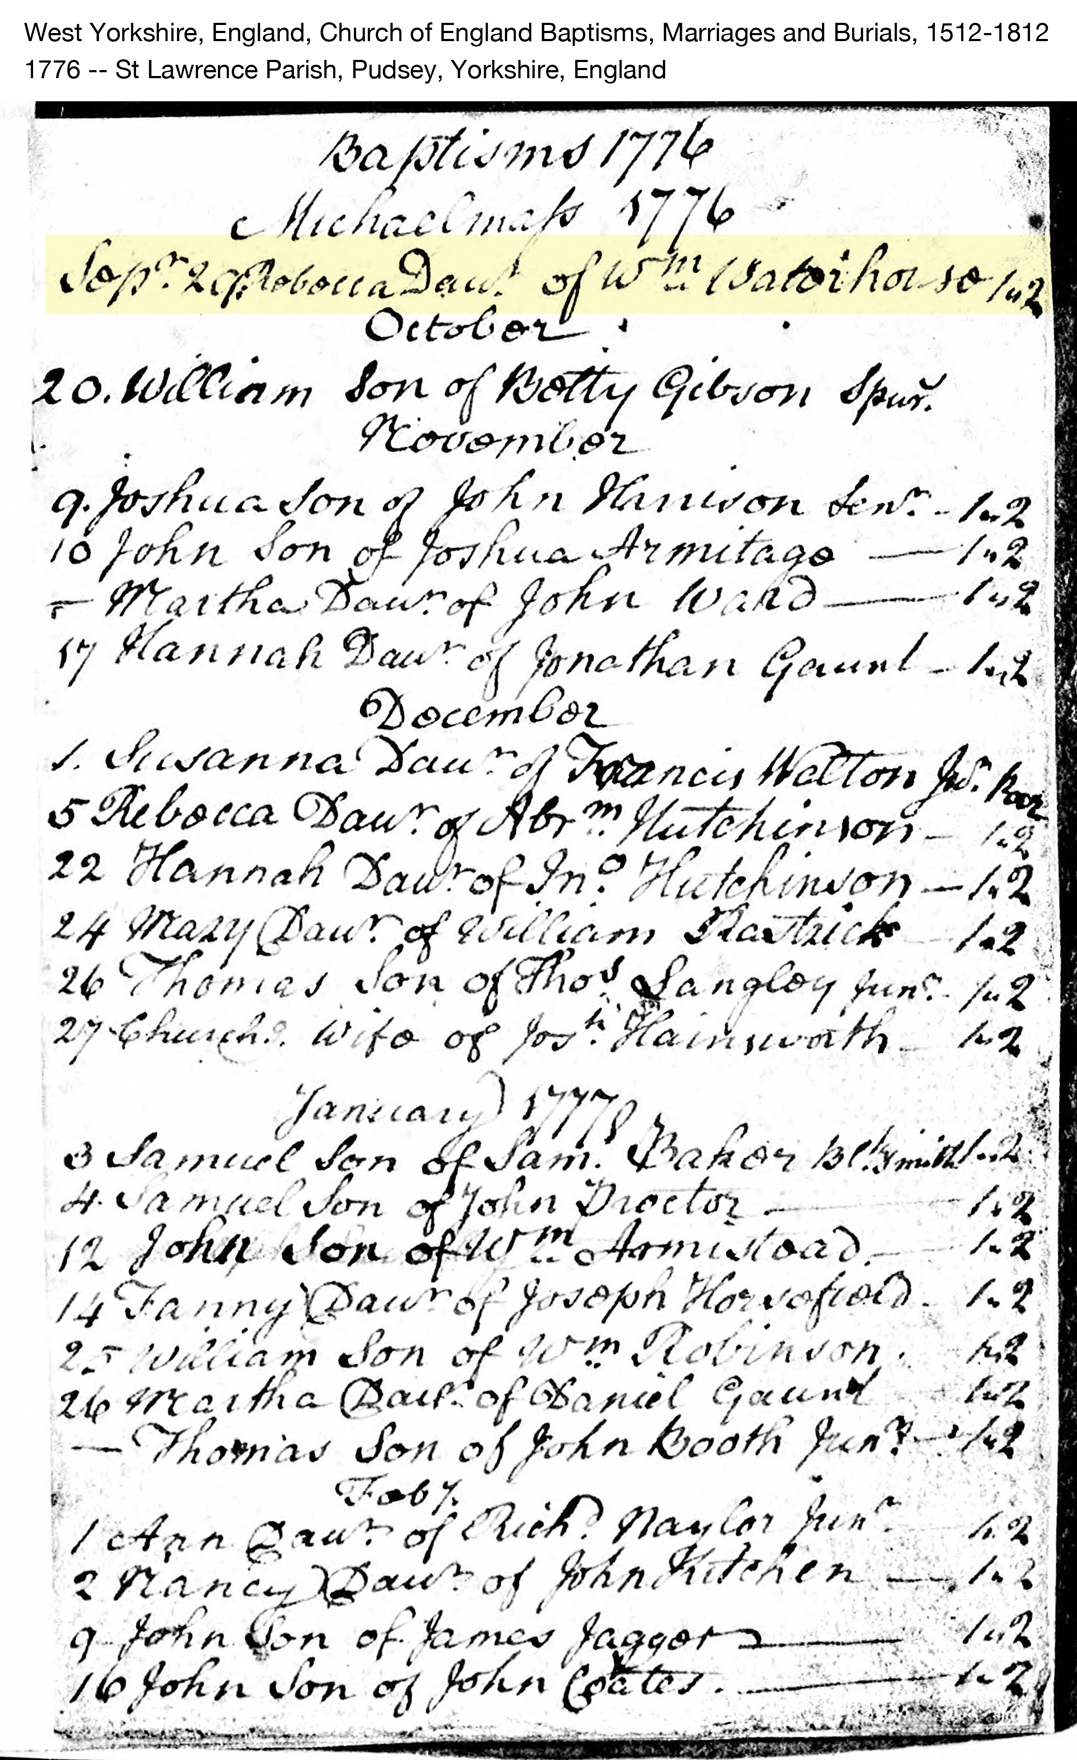 West Yorkshire, England, Church of England Baptisms, Marriages and Burials, 1512-1812
1776 -- St Lawrence Parish, Pudsey, Yorkshire, England
Baptisms 1776
Michaelmass 1776
Sepr. 29 Rebecca Daur. of Wm Waterhouse 1"2
October
20. William Son of Betty Gibson Spur.
November
9. Joshua Son of John Harrison Senr. - 1"2
10 John Son of Joshua Armitage — 1"2
- Martha Daur. of John Ward — 1"2
17 Hannah Daur. of Jonathan Gaunt - 1"2
December
1. Susanna Daur. of Francis Walton Jr. Poor
5 Rebecca Daur. of Abrm. Hutchinson - 1"2
22 Hannah Daur of Jno. Hutchinson — 1"2
24 Mary Daur. of William Rastrick 1"2
26 Thomas Son of Thos Langley Junr. 1"2
27 Churchg. Wife of Josh. Hainsworth - 1"2
January 1777
3 Samuel Son of Sam. Baker Bl.Smith 1"2
4. Samuel Son of John Proctor — 1"2
12 John Son of Wm. Armistead. — 1"2
14 Fanny Daur of Joseph Horsefield. 1"2
25 William Son of Wm. Robinson. 1"2
26 Martha Daur. of Daniel Gaunt 1"2
— Thomas Son of John Booth Junr. - 1"2
Feby.
1 Ann Daur. of Richd. Naylor Junr. 1"2
2 Nancy Daur. of John Kitchen — 1"2
9 John Son of James Jagger — 1"2
16 John Son of John Coates. — 1"2